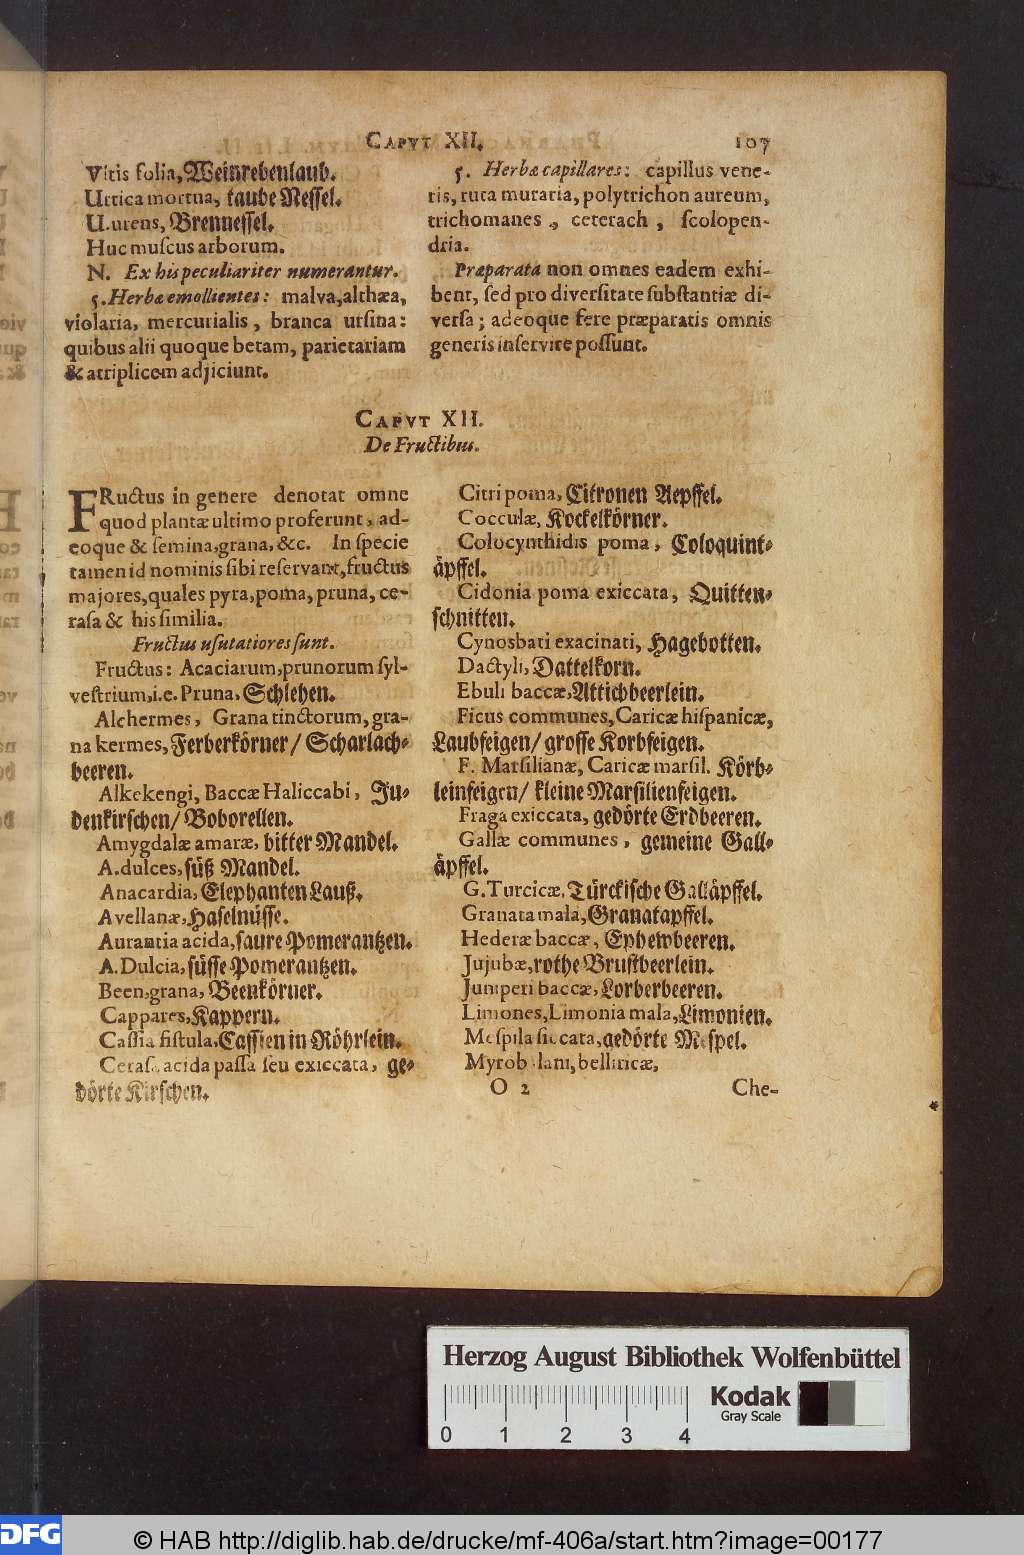 CAPVT XII. 107
Vitis folia, Weinrebenlaub.
Urtica mortua, taube Nessel.
U. urens, Brennessel.
Huc muscus arborum.
N. Ex his peculiariter numerantur.
5. Herbæ emollientes: malva, althæa,
violaria, mercurialis, branca ursina:
quibus alii quoque betam, parietariam
& atriplicem adjiciunt.
5. Herbæ capillares: capillus vene-
ris, ruta muraria, polytrichon aureum,
trichomanes, ceterach, scolopen-
dria.
Præparata non omnes eadem exhi-
bent, sed pro diversitate substantiæ di-
versa; adeoque fere præparatis omnis
generis inservire possunt.
CAPVT XII.
De Fructibus.
FRuctus in genere denotat omne
quod plantæ ultimo proferunt, ad-
eoque & semina, grana, &c. In specie
tamen id nominis sibi reservant, fructus
majores, quales pyra, poma, pruna, ce-
rasa & his similia.
Fructus usutatiores sunt.
Fructus: Acaciarum, prunorum syl-
vestrium, i.e. Pruna, Schlehen.
Alchermes, Grana tinctorum, gra-
na kermes, Ferberkörner / Scharlach-
beeren.
Alkekengi, Baccæ Haliccabi, Ju-
denkirschen / Boborellen.
Amygdalæ amaræ, bitter Mandel.
A. dulces, süß Mandel.
Anacardia, Elephanten Lauß.
Avellanæ, Haselnüsse.
Aurantia acida, saure Pomerantzen.
A. Dulcia, süsse Pomerantzen.
Been, grana, Beenkörner.
Cappares, Kappern.
Cassia fistula, Cassien in Röhrlein.
Cerasa acida passa seu exiccata, ge-
dörte Kirschen.
Citri poma, Citronen Aepffel.
Cocculæ, Kockelkörner.
Colocynthidis poma, Coloquint-
äpffel.
Cidonia poma exiccata, Quitten-
schnitten.
Cynosbati exacinati, Hagebotten.
Dactyli, Dattelkorn.
Ebuli baccæ, Attichbeerlein.
Ficus communes, Caricæ hispanicæ,
Laubfeigen / grosse Korbfeigen.
F. Marsilianæ, Caricæ marsil. Körb-
leinfeigen / kleine Marsilienfeigen.
Fraga exiccata, gedörte Erdbeeren.
Gallæ communes, gemeine Gall-
äpffel.
G. Turcicæ, Türckische Galläpffel.
Granata mala, Granatapffel.
Hederæ baccæ, Ephewbeeren.
Jujubæ, rothe Brustbeerlein.
Juniperi baccæ, Lorberbeeren.
Limones, Limonia mala, Limonien.
Mespila siccata, gedörte Mespel.
Myrobalani, belliricæ,
O 2 Che-
Herzog August Bibliothek Wolfenbüttel
Kodak
Gray Scale
0 1 2 3 4
DFG © HAB http://diglib.hab.de/drucke/mf-406a/start.htm?image=00177